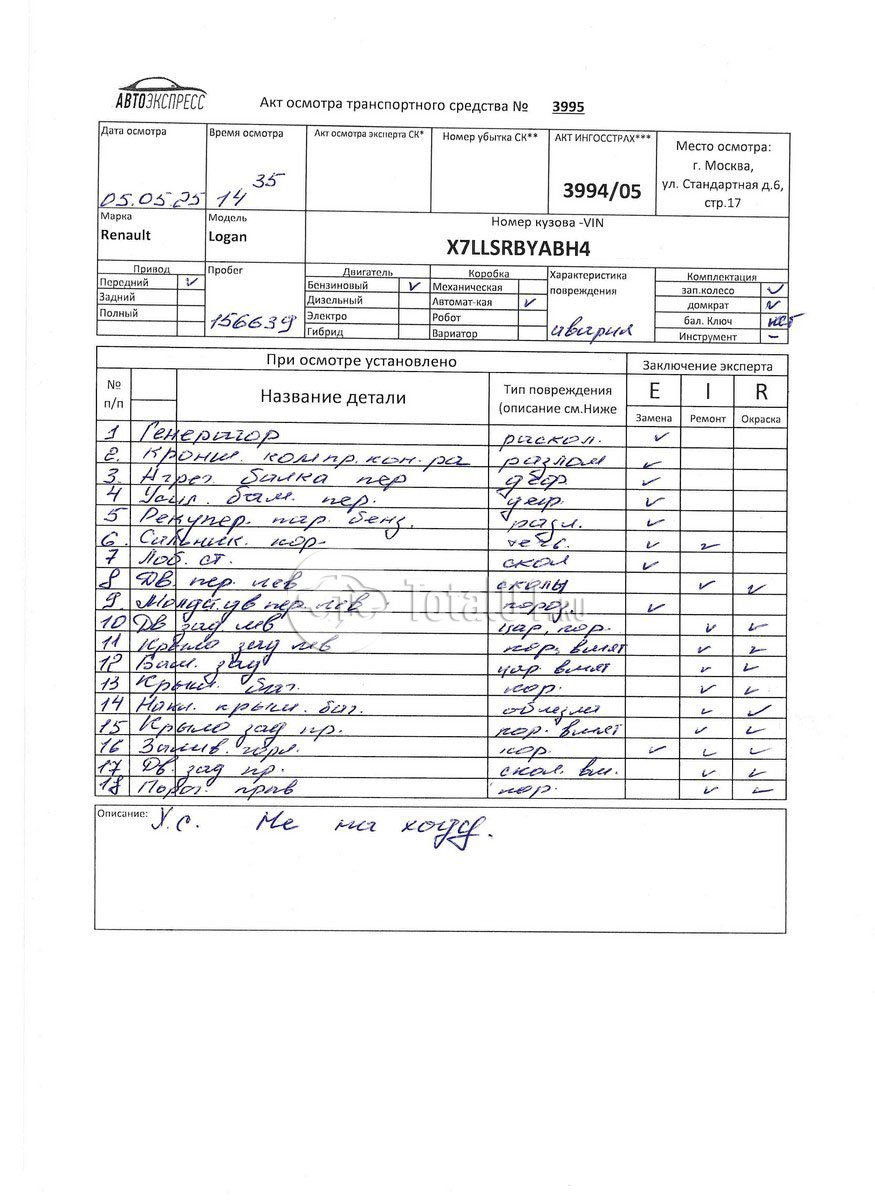 АВТОЭКСПРЕСС
Акт осмотра транспортного средства № 3995
Дата осмотра Время осмотра Акт осмотра эксперта СК* Номер убытка СК** АКТ ИНГОССТРАХ*** Место осмотра:
г. Москва,
05.05.25 14 35 3994/05 ул. Стандартная д.6,
стр.17
Марка Модель Номер кузова -VIN
Renault Logan X7LLSRBYABH4
Привод Пробег Двигатель Коробка Характеристика Комплектация
Передний V Бензиновый V Механическая повреждения зап.колесо V
Задний Дизельный Автомат-кая V домкрат V
Полный 156639 Электро Робот авария бал. Ключ нет
Гибрид Вариатор Инструмент –
При осмотре установлено Заключение эксперта
№ Название детали Тип повреждения E I R
п/п (описание см.Ниже Замена Ремонт Окраска
1 Генератор раскол. V
2. Кронш. компр. кон-ра разлом V
3. Агрег. балка пер деф V
4 Усил. бам. пер. деф. V
5 Рекупер. пар. бенз. разл. V
6. Сальник. кор. течь. V V
7 Лоб. ст. скол V
8 Дв. пер. лев сколы V V
TotalOT.RU
9. Молд. дв пер. лев пород. V
10 Дв зад лев цар, кор. V V
11 Крыло зад лев кор. вмят V V
12 Бам. зад цар. вмят V V
13 Крыш. баг. кор. V V
14 Накл. крыш. баг. облезла V V
15 Крыло зад пр. кор. вмят V V
16 Залив. горл. кор. V V V
17 Дв. зад пр. скол. вм. V V
18 Порог прав кор. V V
Описание: У.с. Не на ходу.